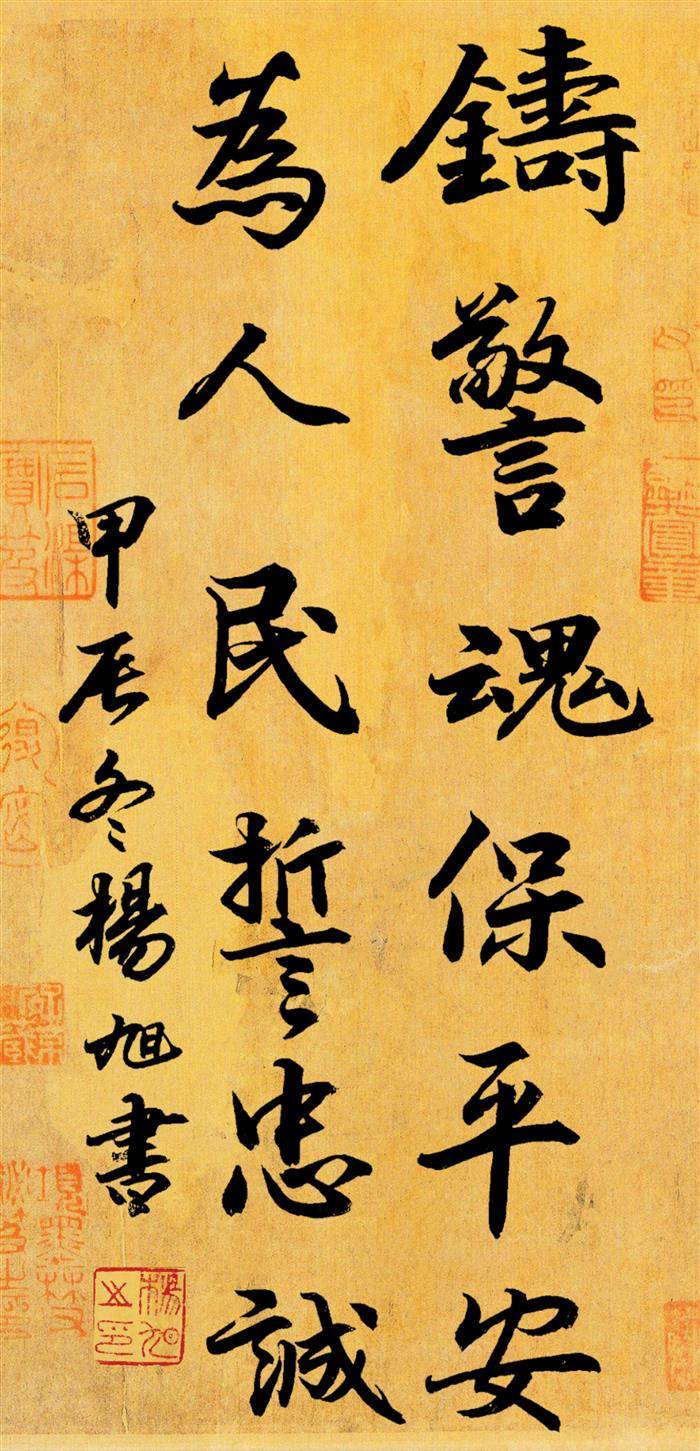 鑄警魂保平安
為人民誓忠誠
甲辰冬楊旭書
楊旭之印